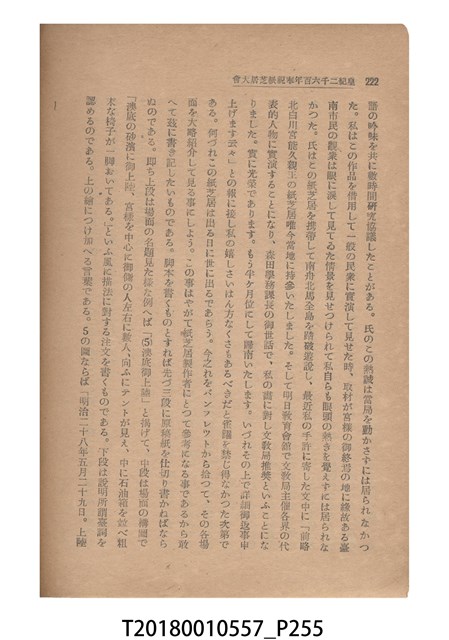 222
皇紀二千六百年奉祝紙芝居大會
語の吟味を共に數時間研究協議したことがある。氏のこの熱誠は當局を動かさずには居られなかつ
た。私はこの作品を借用して一般の民衆に實演して見せた時、取材が宮樣の御終焉の地に緣故ある臺
南市民の觀衆は眼に淚して見てゐた情景を見せつけられて私自らも眼頭の熱きを覺えずには居られな
かつた。氏はこの紙芝居を携帶して南舟北馬全島を踏破遊說し、最近私の手許に寄した文中に「前略
北白川宮能久親王の紙芝居唯今當地に持參いたしました。そして明日敎育會館で文敎局主催各界の代
表的人物に實演することになり、森田學務課長の御世話で、私の畫に對し文敎局推奬といふことにな
りました。實に光榮であります。もう半ケ月位にして歸南いたします。いづれその上で詳細御返事申
上げます云々」との報に接し私の嬉しさいはん方なくさもあるべきだと雀躍を禁じ得なかつた次第で
ある。何づれこの紙芝居は出る日に世に出るであらう。今之れをパンフレツトから拾つて、その各場
面を大略紹介して見る事にしよう。この事はやがて紙芝居製作者にとつて參考になる事であるから敢
へて玆に書き記したいものである。脚本を書くものとすれば先づ三段に原稿紙を仕切り書かねばなら
ぬのである。即ち上段は場面の名題見た樣な例へば「⑸澳底御上陸」と揭げて、中段は場面の構圖で
「澳底の砂濱に御上陸、宮樣を中心に御傭の人左右に數人、向ふにテントが見え、中に石油箱を竝べ粗
末な椅子が一脚おいてある。」といふ風に描法に對する注文を書くものである。下段は說明所謂臺詞を
認めるのである。上の繪につけ加へる言葉である。5の圖ならば「明治二十八年五月二十九日。上陸
T20180010557_P255